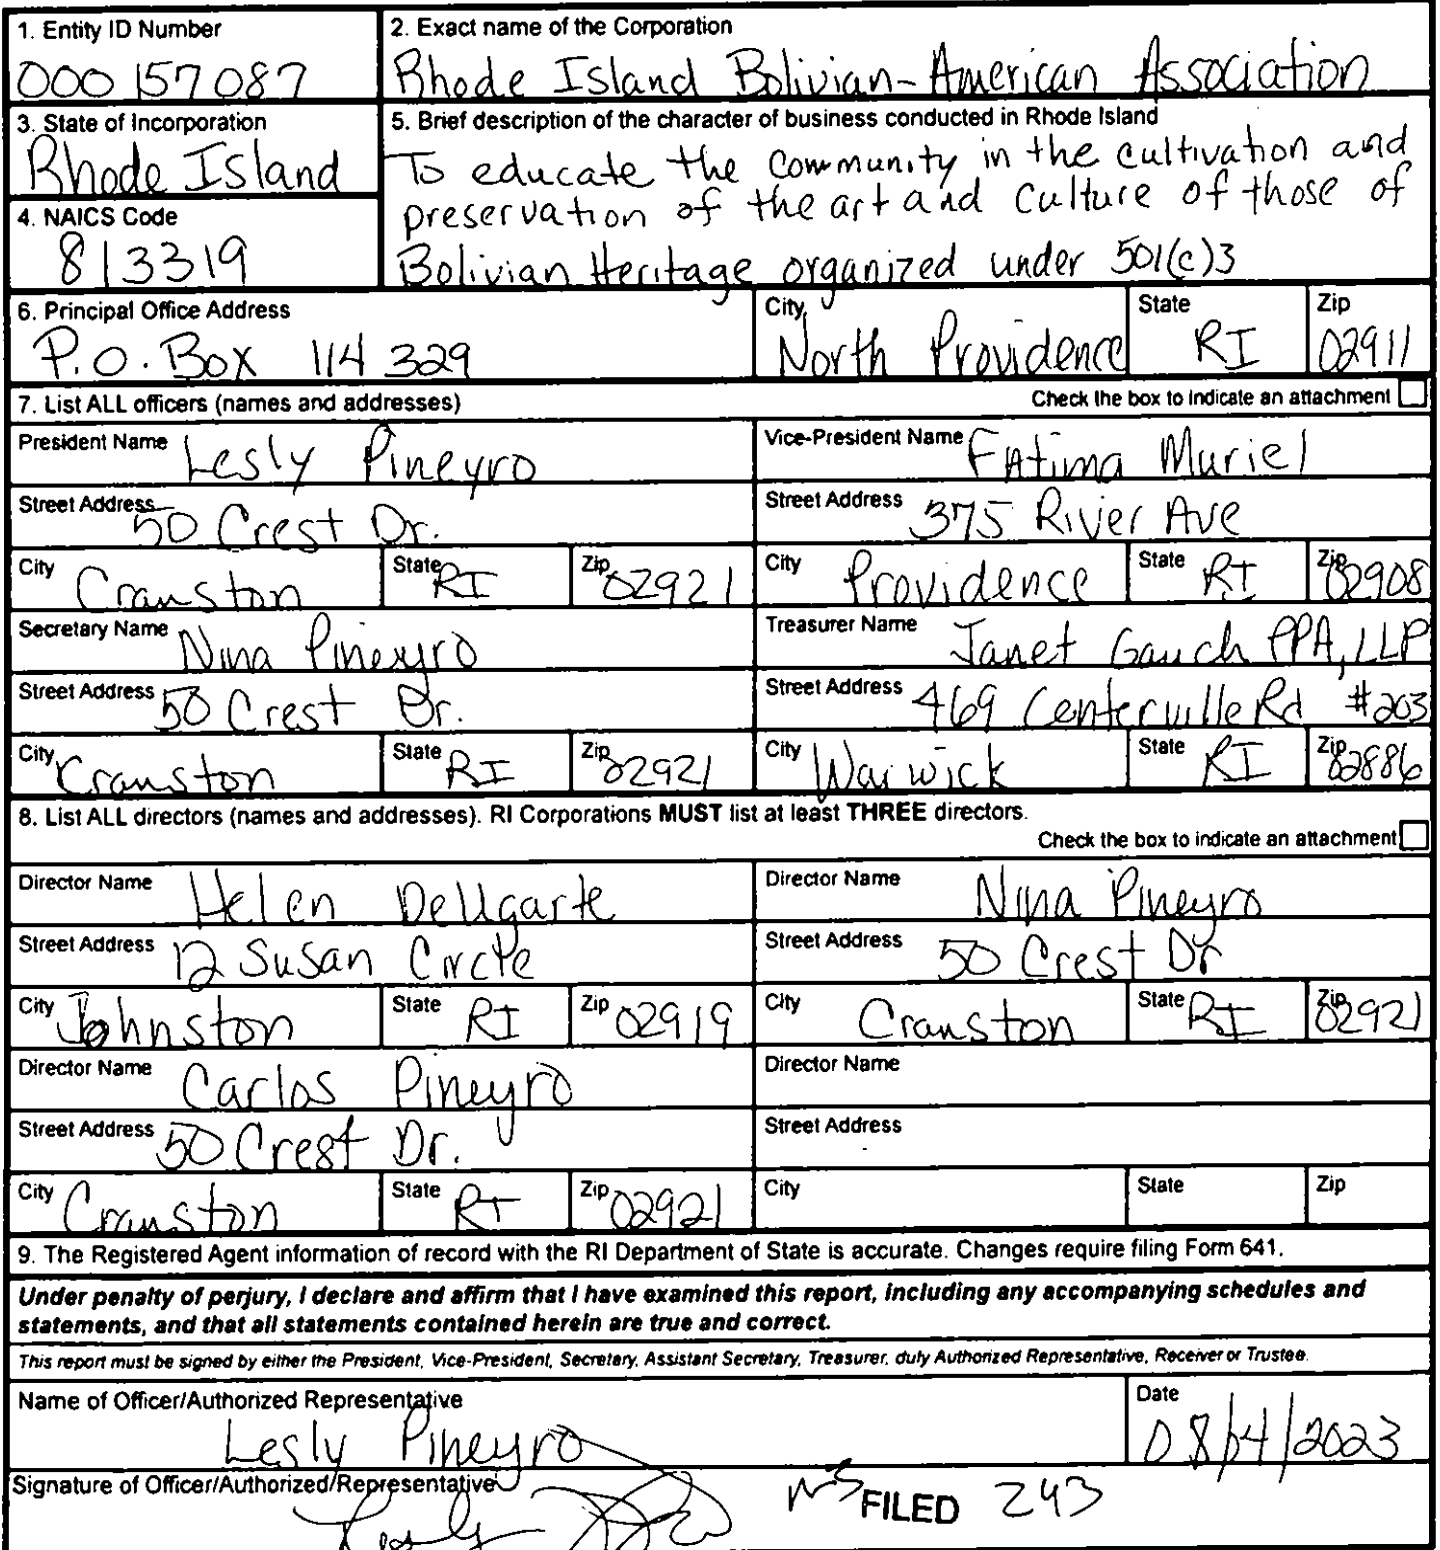 1. Entity ID Number
000157087
2. Exact name of the Corporation
Rhode Island Bolivian-American Association
3. State of Incorporation
Rhode Island
4. NAICS Code
813319
5. Brief description of the character of business conducted in Rhode Island
To educate the community in the cultivation and
preservation of the art and culture of those of
Bolivian Heritage organized under 501(c)3
6. Principal Office Address
P.O. Box 114 329
City
North Providence
State
RI
Zip
02911
7. List ALL officers (names and addresses)
Check the box to indicate an attachment
President Name Lesly Pineyro
Vice-President Name Fatima Muriel
Street Address 50 Crest Dr.
Street Address 375 River Ave
City Cranston State RI Zip 02921
City Providence State RI Zip 02908
Secretary Name Nina Pineyro
Treasurer Name Janet Gauch PPA, LLP
Street Address 50 Crest Dr.
Street Address 469 Centerville Rd #203
City Cranston State RI Zip 02921
City Warwick State RI Zip 02886
8. List ALL directors (names and addresses). RI Corporations MUST list at least THREE directors.
Check the box to indicate an attachment
Director Name Helen
Director Name Nina Pineyro
Street Address 12 Susan Circle
Street Address 50 Crest Dr
City Johnston State RI Zip 02919
City Cranston State RI Zip 02921
Director Name Carlos Pineyro
Director Name
Street Address 50 Crest Dr.
Street Address
City Cranston State RI Zip 02921
City State Zip
9. The Registered Agent information of record with the RI Department of State is accurate. Changes require filing Form 641.
Under penalty of perjury, I declare and affirm that I have examined this report, including any accompanying schedules and
statements, and that all statements contained herein are true and correct.
This report must be signed by either the President, Vice-President, Secretary, Assistant Secretary, Treasurer, duly Authorized Representative, Receiver or Trustee.
Name of Officer/Authorized Representative
Lesly Pineyro
Date
Signature of Officer/Authorized/Representative
FILED 243